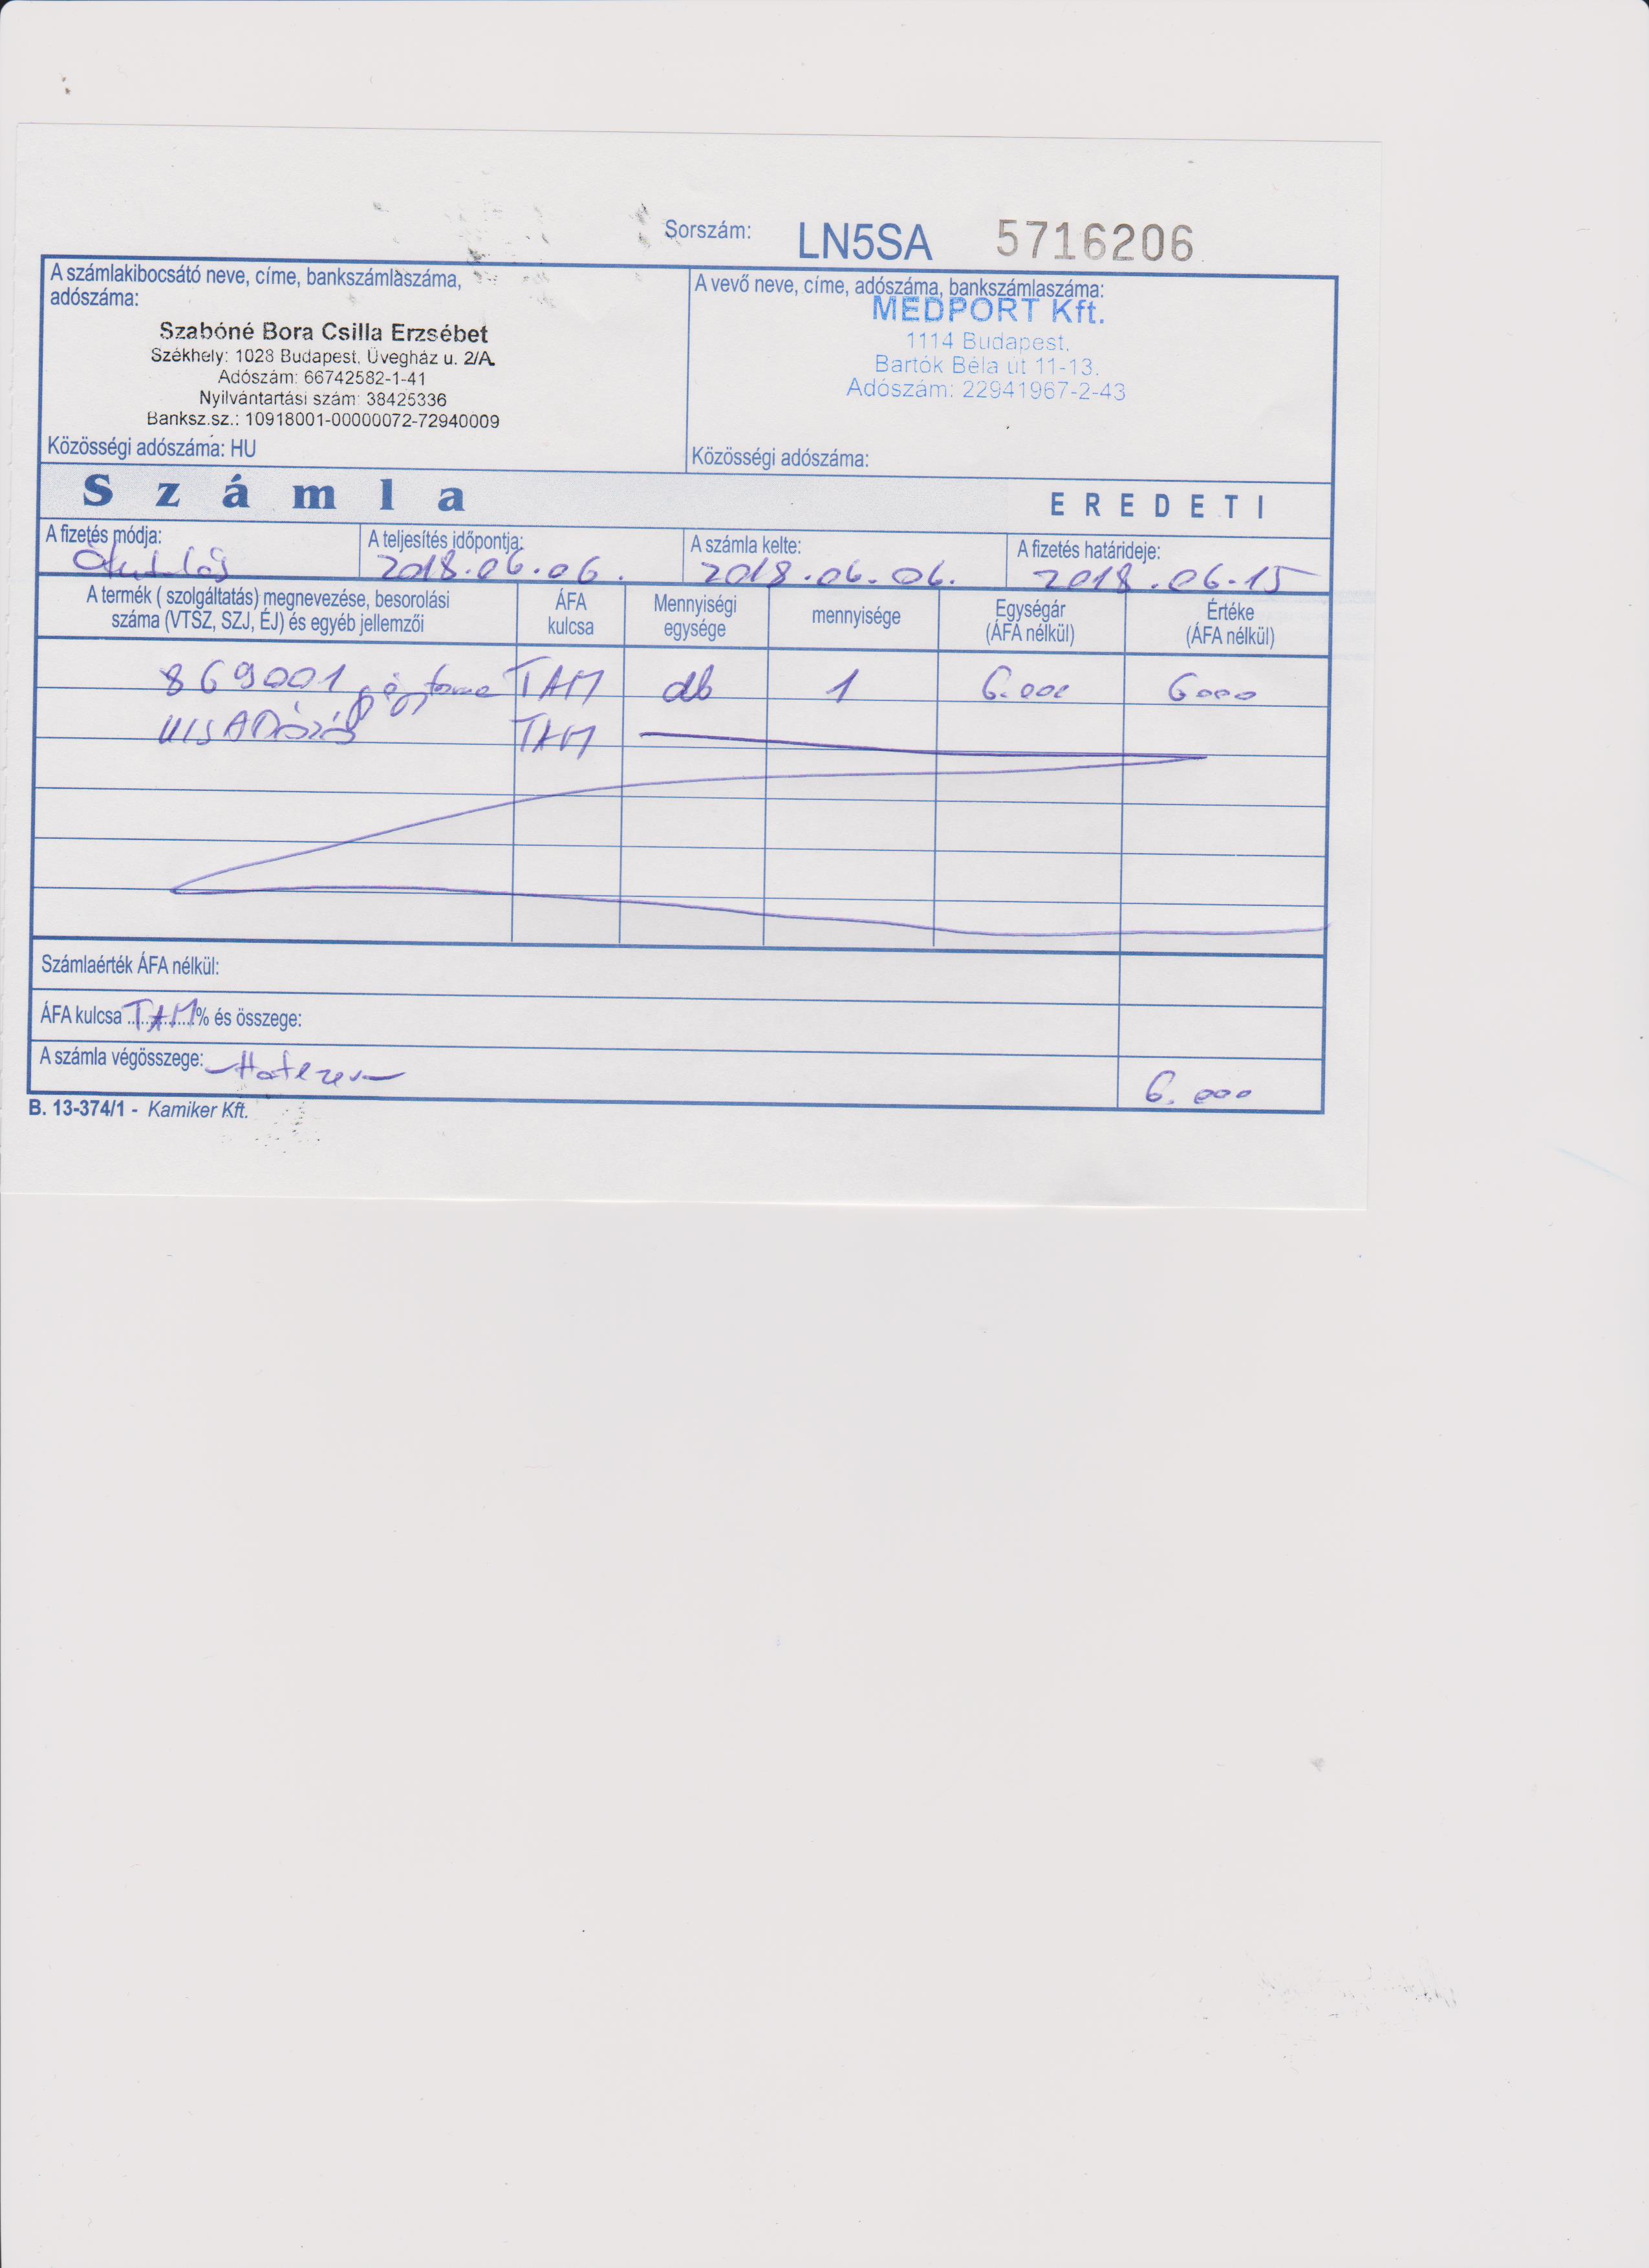 Sorszám: LN5SA 5716206
A számlakibocsátó neve, címe, bankszámlaszáma,
adószáma:
Szabóné Bora Csilla Erzsébet
Székhely: 1028 Budapest, Üvegház u. 2/A.
Adószám: 66742582-1-41
Nyilvántartási szám: 38425336
Banksz.sz.: 10918001-00000072-72940009
Közösségi adószáma: HU
A vevő neve, címe, adószáma, bankszámlaszáma:
MEDPORT Kft.
1114 Budapest,
Bartók Béla út 11-13.
Adószám: 22941967-2-43
Közösségi adószáma:
Számla EREDETI
A fizetés módja: A teljesítés időpontja: A számla kelte: A fizetés határideje:
2018.06.06. 2018.06.06. 2018.06.15
A termék ( szolgáltatás) megnevezése, besorolási
száma (VTSZ, SZJ, ÉJ) és egyéb jellemzői
ÁFA
kulcsa
Mennyiségi
egysége
mennyisége
Egységár
(ÁFA nélkül)
Értéke
(ÁFA nélkül)
869001 TAM db 1 6.000 6000
TAM
Számlaérték ÁFA nélkül:
ÁFA kulcsa TAM % és összege:
A számla végösszege: Hatezer 6.000
B. 13-374/1 - Kamiker Kft.